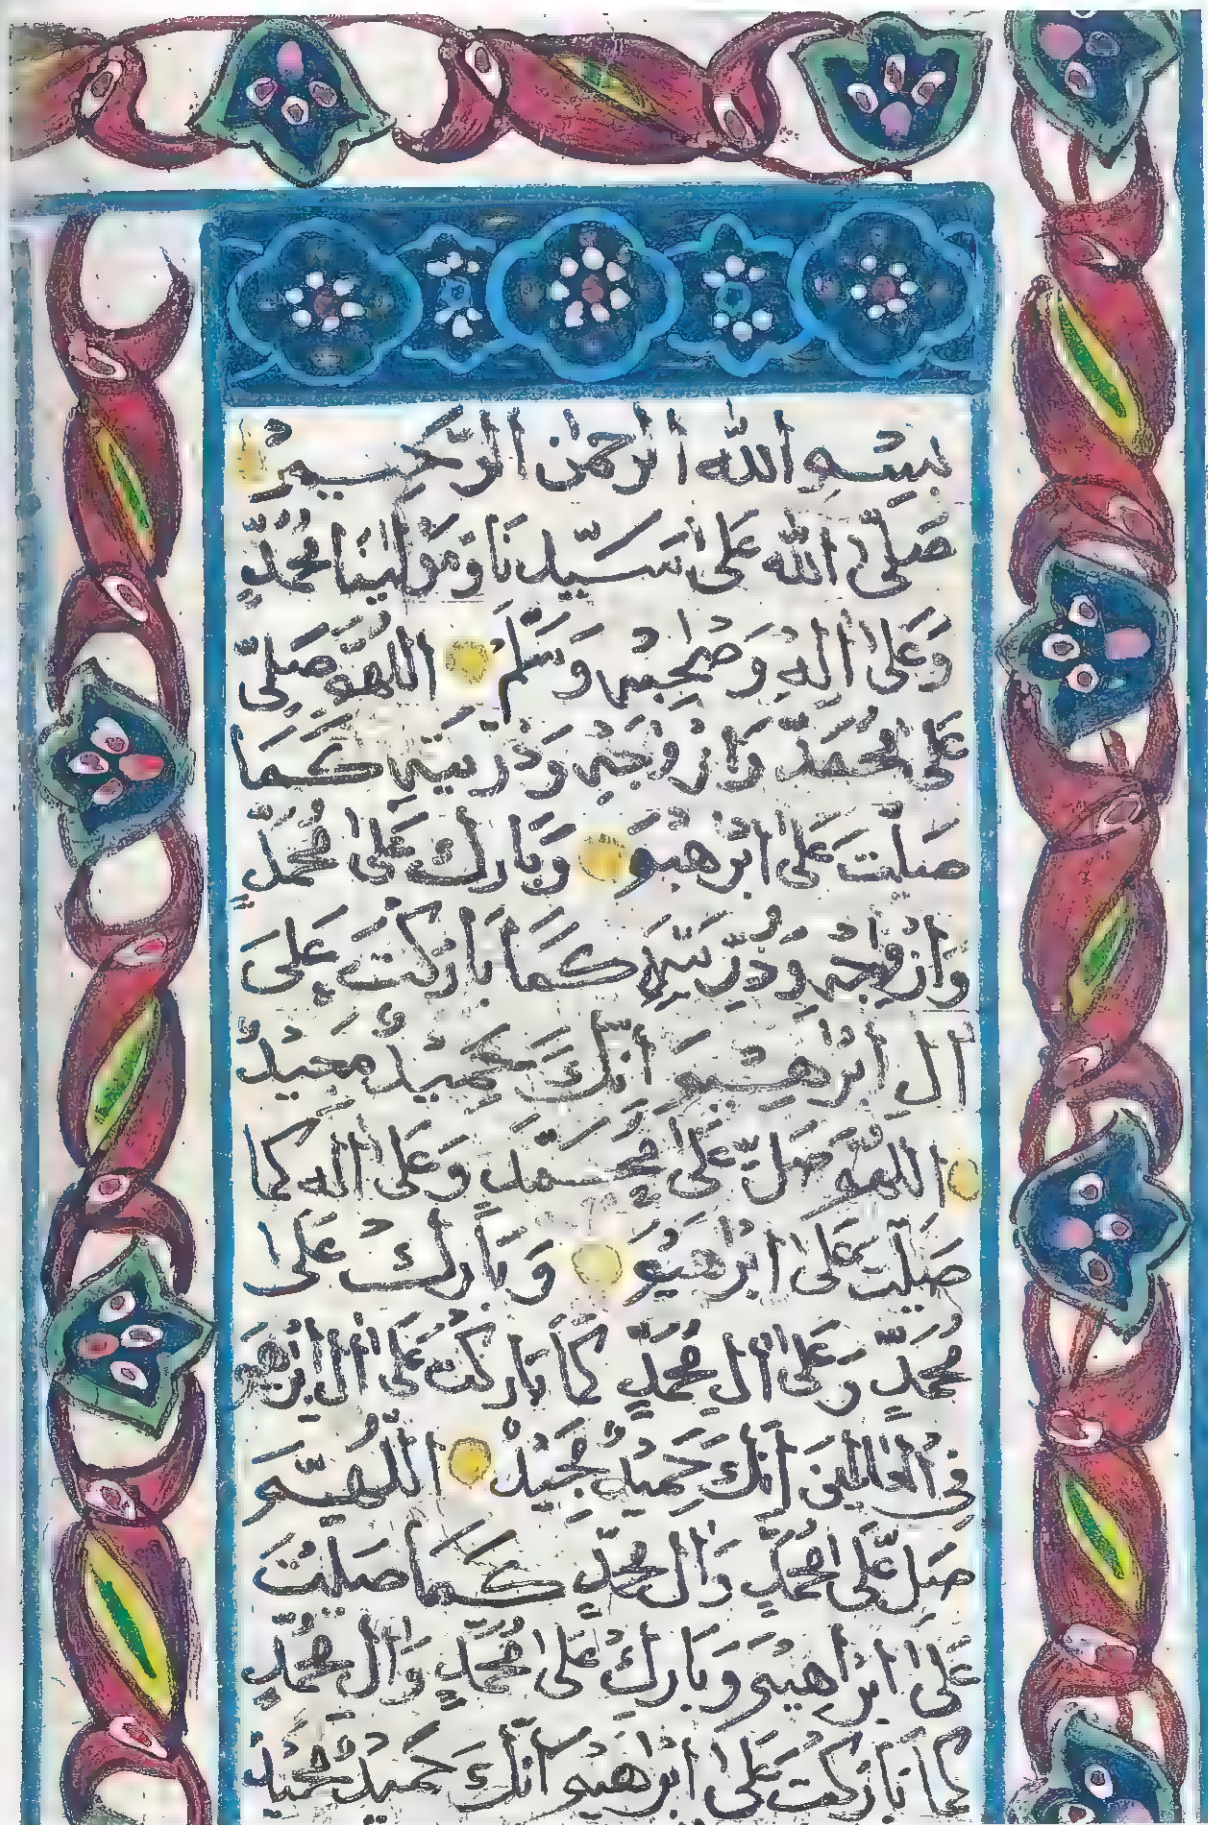 بِسْمِ اللّٰهِ الرَّحْمٰنِ الرَّحِيْمِ
صَلَّى اللّٰهُ عَلٰى سَيِّدِنَا وَمَوْلٰينَا مُحَمَّدٍ
وَعَلٰى اٰلِهٖ وَصَحْبِهٖ وَسَلَّمْ اَللّٰهُمَّ صَلِّ
عَلٰى مُحَمَّدٍ وَاَزْوٰجِهٖ وَذُرِّيَّتِهٖ كَمَا
صَلَّيْتَ عَلٰى اِبْرٰهِيْمَ وَبَارِكْ عَلٰى مُحَمَّدٍ
وَاَزْوٰجِهٖ وَذُرِّيَّتِهٖ كَمَا بَارَكْتَ عَلٰى
اٰلِ اِبْرٰهِيْمَ اِنَّكَ حَمِيْدٌ مَجِيْدٌ
اَللّٰهُمَّ صَلِّ عَلٰى مُحَمَّدٍ وَعَلٰى اٰلِهٖ كَمَا
صَلَّيْتَ عَلٰى اِبْرٰهِيْمَ وَبَارِكْ عَلٰى
مُحَمَّدٍ وَعَلٰى اٰلِ مُحَمَّدٍ كَمَا بَارَكْتَ عَلٰى اٰلِ اِبْرٰهِيْمَ
فِي الْعَالَمِيْنَ اِنَّكَ حَمِيْدٌ مَجِيْدٌ اَللّٰهُمَّ
صَلِّ عَلٰى مُحَمَّدٍ وَاٰلِ مُحَمَّدٍ كَمَا صَلَّيْتَ
عَلٰى اِبْرَاهِيْمَ وَبَارِكْ عَلٰى مُحَمَّدٍ وَاٰلِ مُحَمَّدٍ
كَمَا بَارَكْتَ عَلٰى اِبْرٰهِيْمَ اِنَّكَ حَمِيْدٌ مَجِيْدٌ